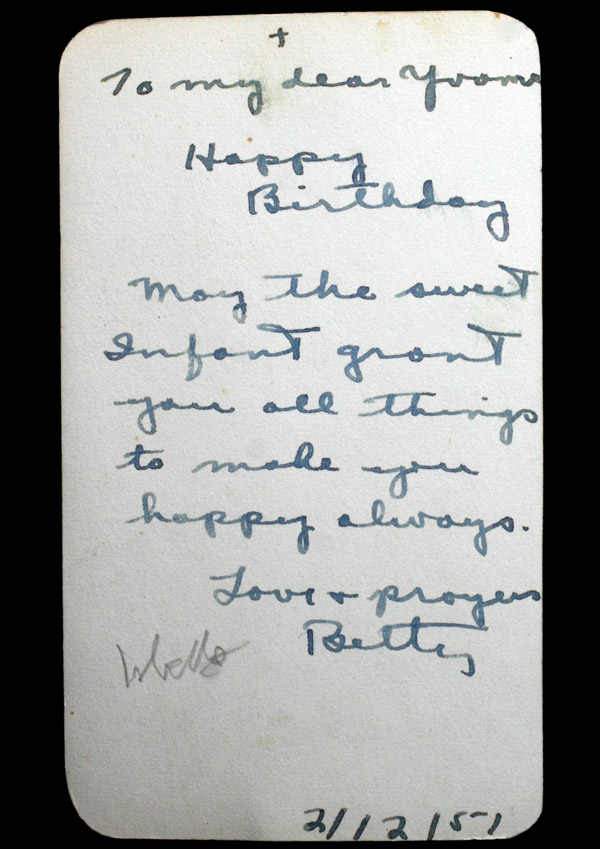 +
To my dear Yvonne
Happy
Birthday
May the sweet
Infant grant
you all things
to make you
happy always.
Love + prayers
Betty
2/12/51